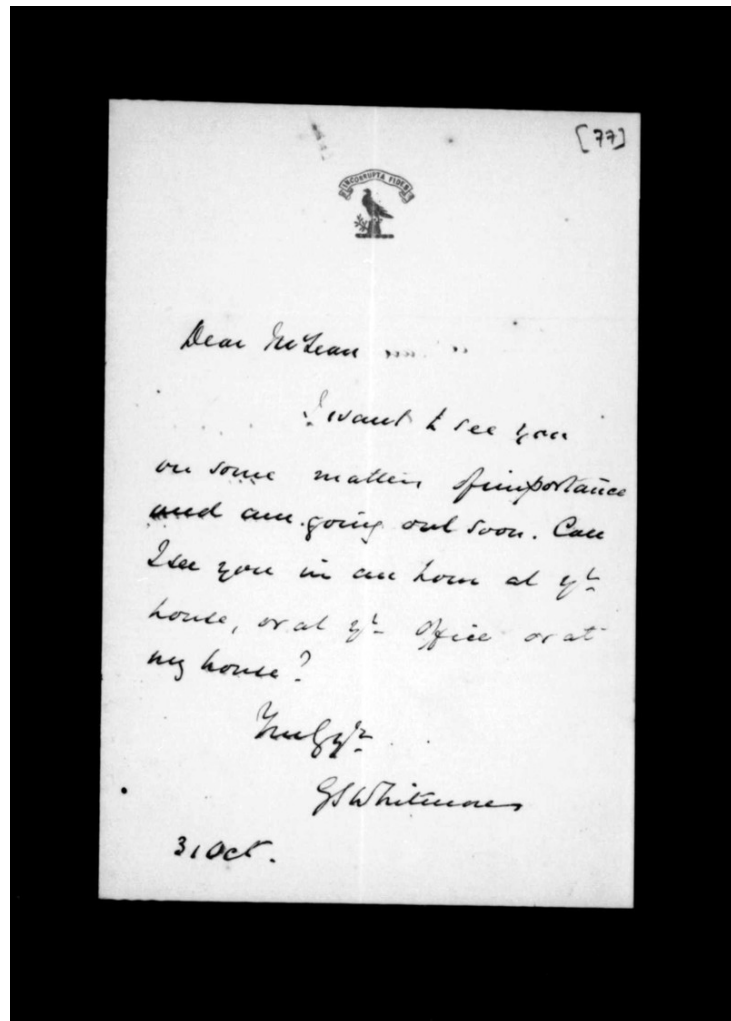 [77]
INCORRUPTA FIDES
Dear McLean
I want to see you
on some matters of importance
and am going out soon. Can
I see you in an hour at yr
house, or at yr Office or at
my house?
Truly yr
GSWhitmore
31 Oct.